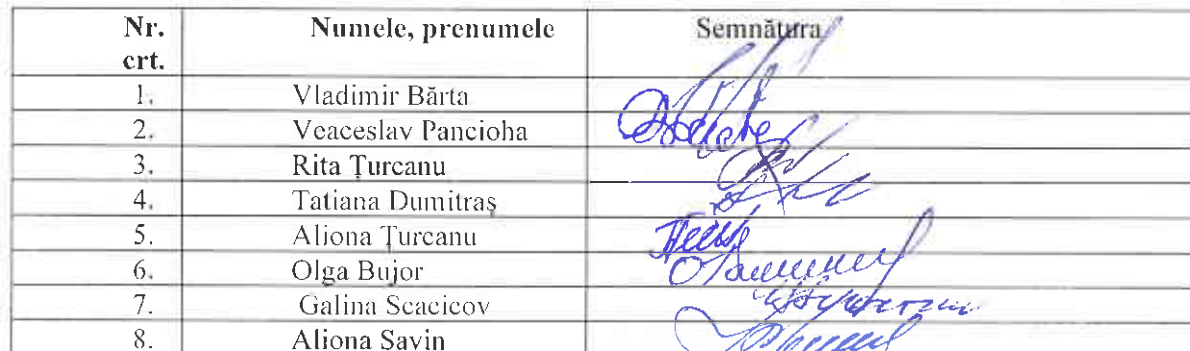 Nr. crt. Numele, prenumele Semnătura
1. Vladimir Bărta
2. Veaceslav Pancioha
3. Rita Țurcanu
4. Tatiana Dumitraș
5. Aliona Țurcanu
6. Olga Bujor
7. Galina Scacicov
8. Aliona Savin